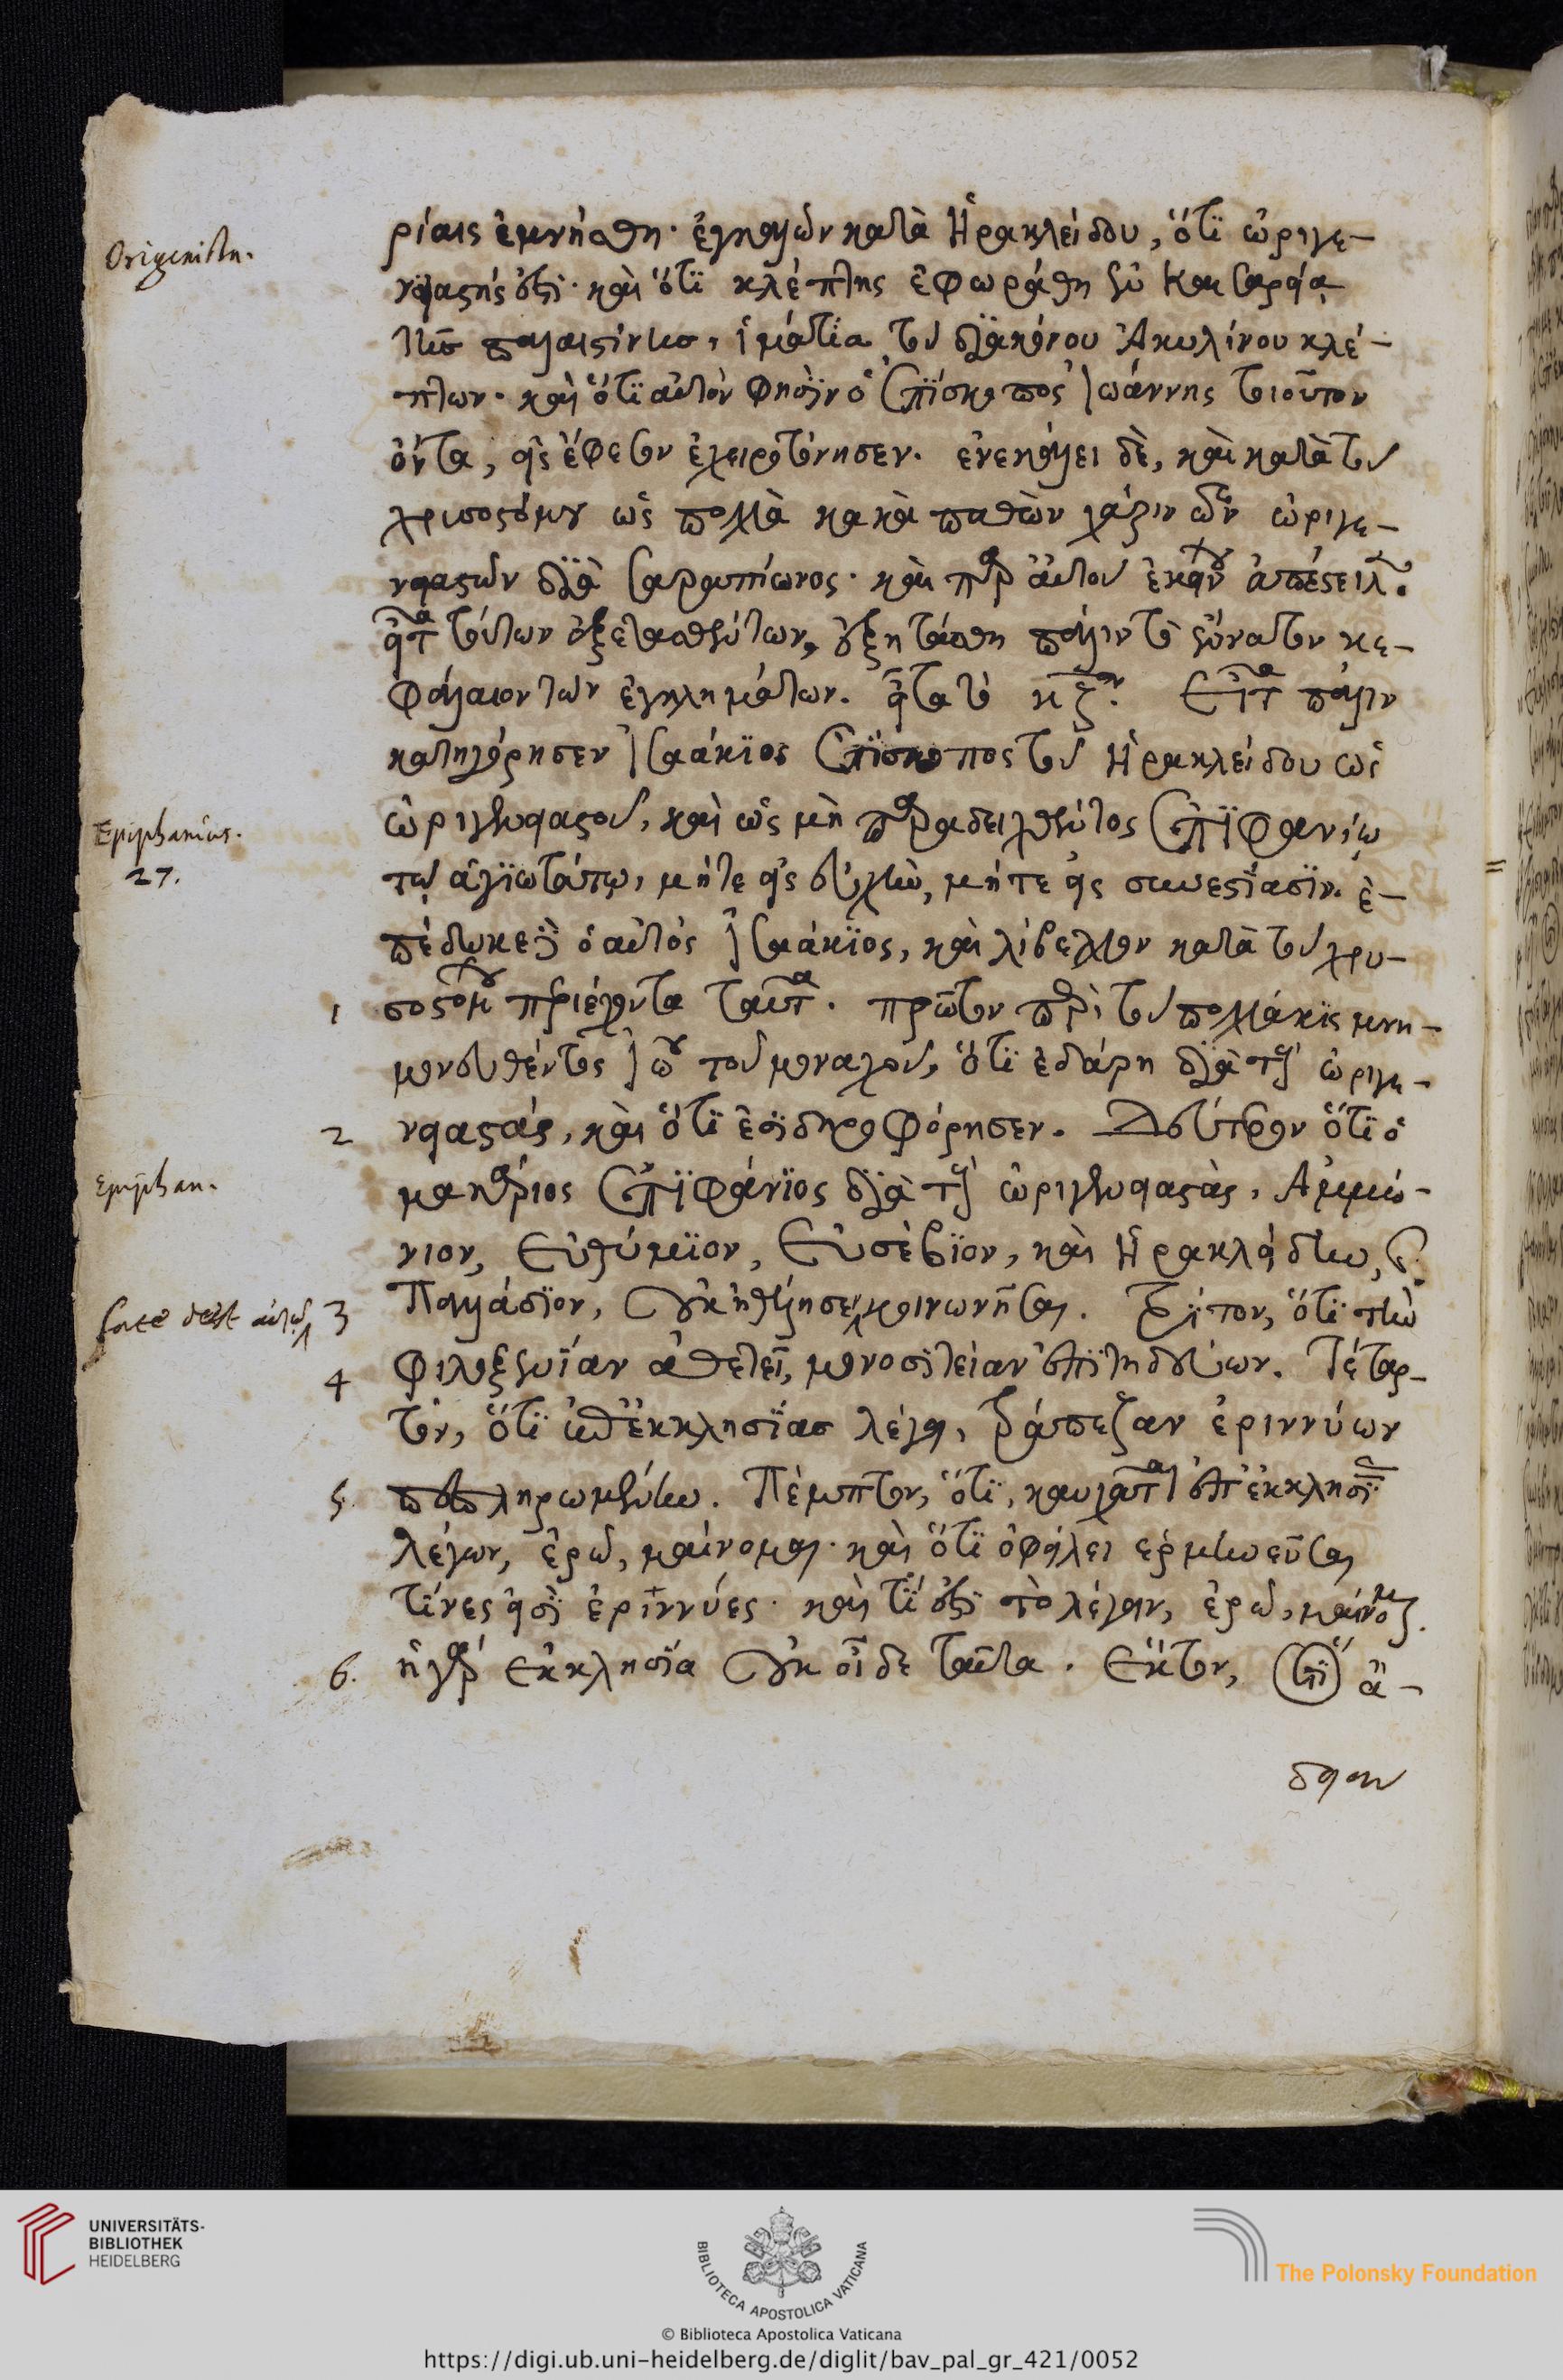 Origenistη.
ρίαις ἐμνήσθη· ἐγκαλῶν κατὰ Ἡρακλείδου, ὅτι ὠριγε-
νιαστής ἐστι· καὶ ὅτι κλέπτης ἐφωράθη ἐν Καισαρείᾳ
τῆς παλαιστίνης, ἱμάτια τοῦ διακόνου Ἀκυλίνου κλέ-
πτων· καὶ ὅτι αὐτὸν φησὶν ὁ ἐπίσκοπος Ἰωάννης τοιοῦτον
ὄντα, εἰς ἔφεσον ἐχειροτόνησεν. ἐνεκάλει δὲ, καὶ κατὰ τοῦ
χρυσοστόμου ὡς πολλὰ κακὰ παθὼν χάριν τῶν ὠριγε-
νειαστῶν διὰ Σαραπίωνος· καὶ παρ' αὐτοῦ ἐκείνου ἀπέστειλε.
εἶτα τούτων ἐξετασθέντων, ἐξητάσθη πάλιν τὸ ἔννατον κε-
φάλαιον τῶν ἐγκλημάτων. εἶτα τὸ κζον. Εἶτα πάλιν
κατηγόρησεν Ἰσαάκιος ἐπίσκοπος τοῦ Ἡρακλείδου ὡς
Epiphanius.
27.
ὠριγενειαστοῦ, καὶ ὡς μὴ παραδειχθέντος Ἐπιφανίῳ
τῷ ἁγιωτάτῳ, μήτε εἰς εὐχὴν, μήτε εἰς συνεστίασιν. ἐ-
πέδωκε δὲ ὁ αὐτὸς Ἰσαάκιος, καὶ λίβελλον κατὰ τοῦ χρυ-
1 σοστόμου περιέχοντα ταῦτα. πρῶτον περὶ τοῦ πολλάκις μνη-
μονευθέντος Ἰωάννου τοῦ μοναχοῦ, ὅτι ἐδάρη διὰ τοὺς ὠριγε-
2 νειαστάς, καὶ ὅτι ἐσιδηροφόρησεν. Δεύτερον ὅτι ὁ
Epiphan.
μακάριος Ἐπιφάνιος διὰ τοὺς ὠριγενειαστὰς, Ἀμμώ-
νιον, Εὐθύμιον, Εὐσέβιον, καὶ Ἡρακλείδην, καὶ
forte deest αὐτῷ
3 Παλλάδιον, οὐκ ἠθέλησε κοινωνῆσαι. Τρίτον, ὅτι τὴν
4 φιλοξενίαν ἀθετεῖ, μονοσιτείαν ἐπιτηδεύων. Τέταρ-
τον, ὅτι ἐπ' ἐκκλησίας λέγει, τράπεζαν ἐριννύων
5. πεπληρωμένην. Πέμπτον, ὅτι, καυχᾶται ἐπ' ἐκκλησίας
λέγων, ἐρῶ, μαίνομαι· καὶ ὅτι ὀφείλει ἑρμηνεῦσαι
τίνες εἰσὶ ἐριννύες· καὶ τί ἐστι τὸ λέγειν, ἐρῶ, μαίνομαι.
6. ἡ γὰρ ἐκκλησία οὐκ οἶδε ταῦτα. Ἕκτον, ὅτι ἄ-
δειαν
UNIVERSITÄTS-
BIBLIOTHEK
HEIDELBERG
BIBLIOTECA APOSTOLICA VATICANA
The Polonsky Foundation
© Biblioteca Apostolica Vaticana
https://digi.ub.uni-heidelberg.de/diglit/bav_pal_gr_421/0052